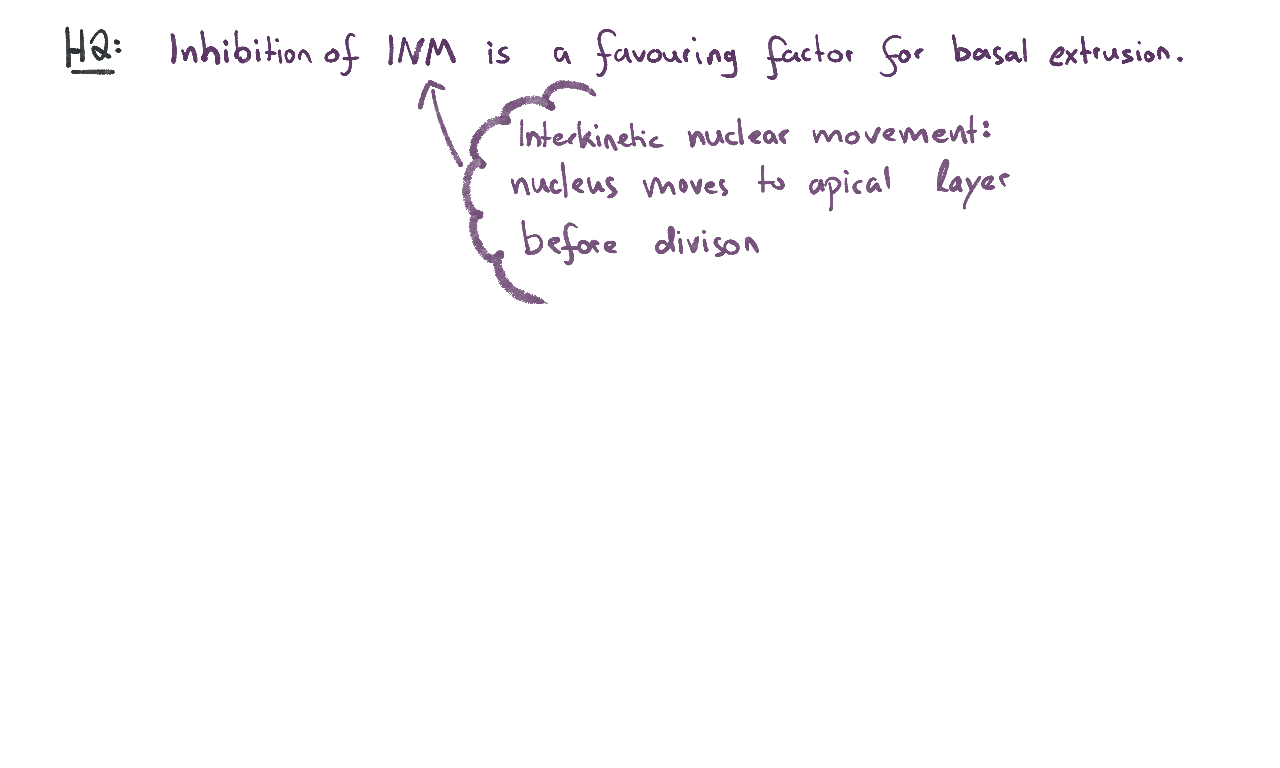 H2: Inhibition of INM is a favouring factor for basal extrusion.
Interkinetic nuclear movement:
nucleus moves to apical layer
before divison